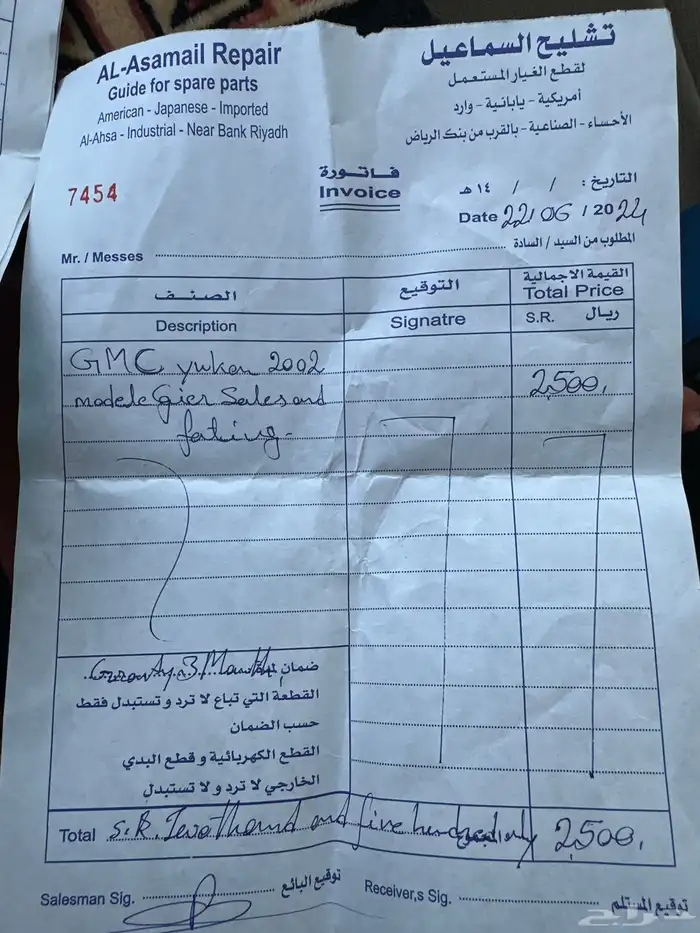 AL-Asamail Repair
Guide for spare parts
American - Japanese - Imported
Al-Ahsa - Industrial - Near Bank Riyadh
تشليح السماعيل
لقطع الغيار المستعمل
أمريكية - يابانية - وارد
الأحساء - الصناعية - بالقرب من بنك الرياض
7454
فاتورة
Invoice
التاريخ : / / ١٤ هـ
Date 22/06/2024
Mr. / Messes
المطلوب من السيد / السادة
الصنف
Description
التوقيع
Signatre
القيمة الاجمالية
Total Price
S.R. ريال
GMC yukon 2002
modele Gier Sales and
2,500,
fating -
ضمان لمدة Guranty. 3 Month
القطعة التي تباع لا ترد و تستبدل فقط
حسب الضمان
القطع الكهربائية و قطع البدي
الخارجي لا ترد و لا تستبدل
Total S.R. Twothound and five hundred only المجموع 2,500,
Salesman Sig. توقيع البائع
Receiver,s Sig. توقيع المستلم
حراج